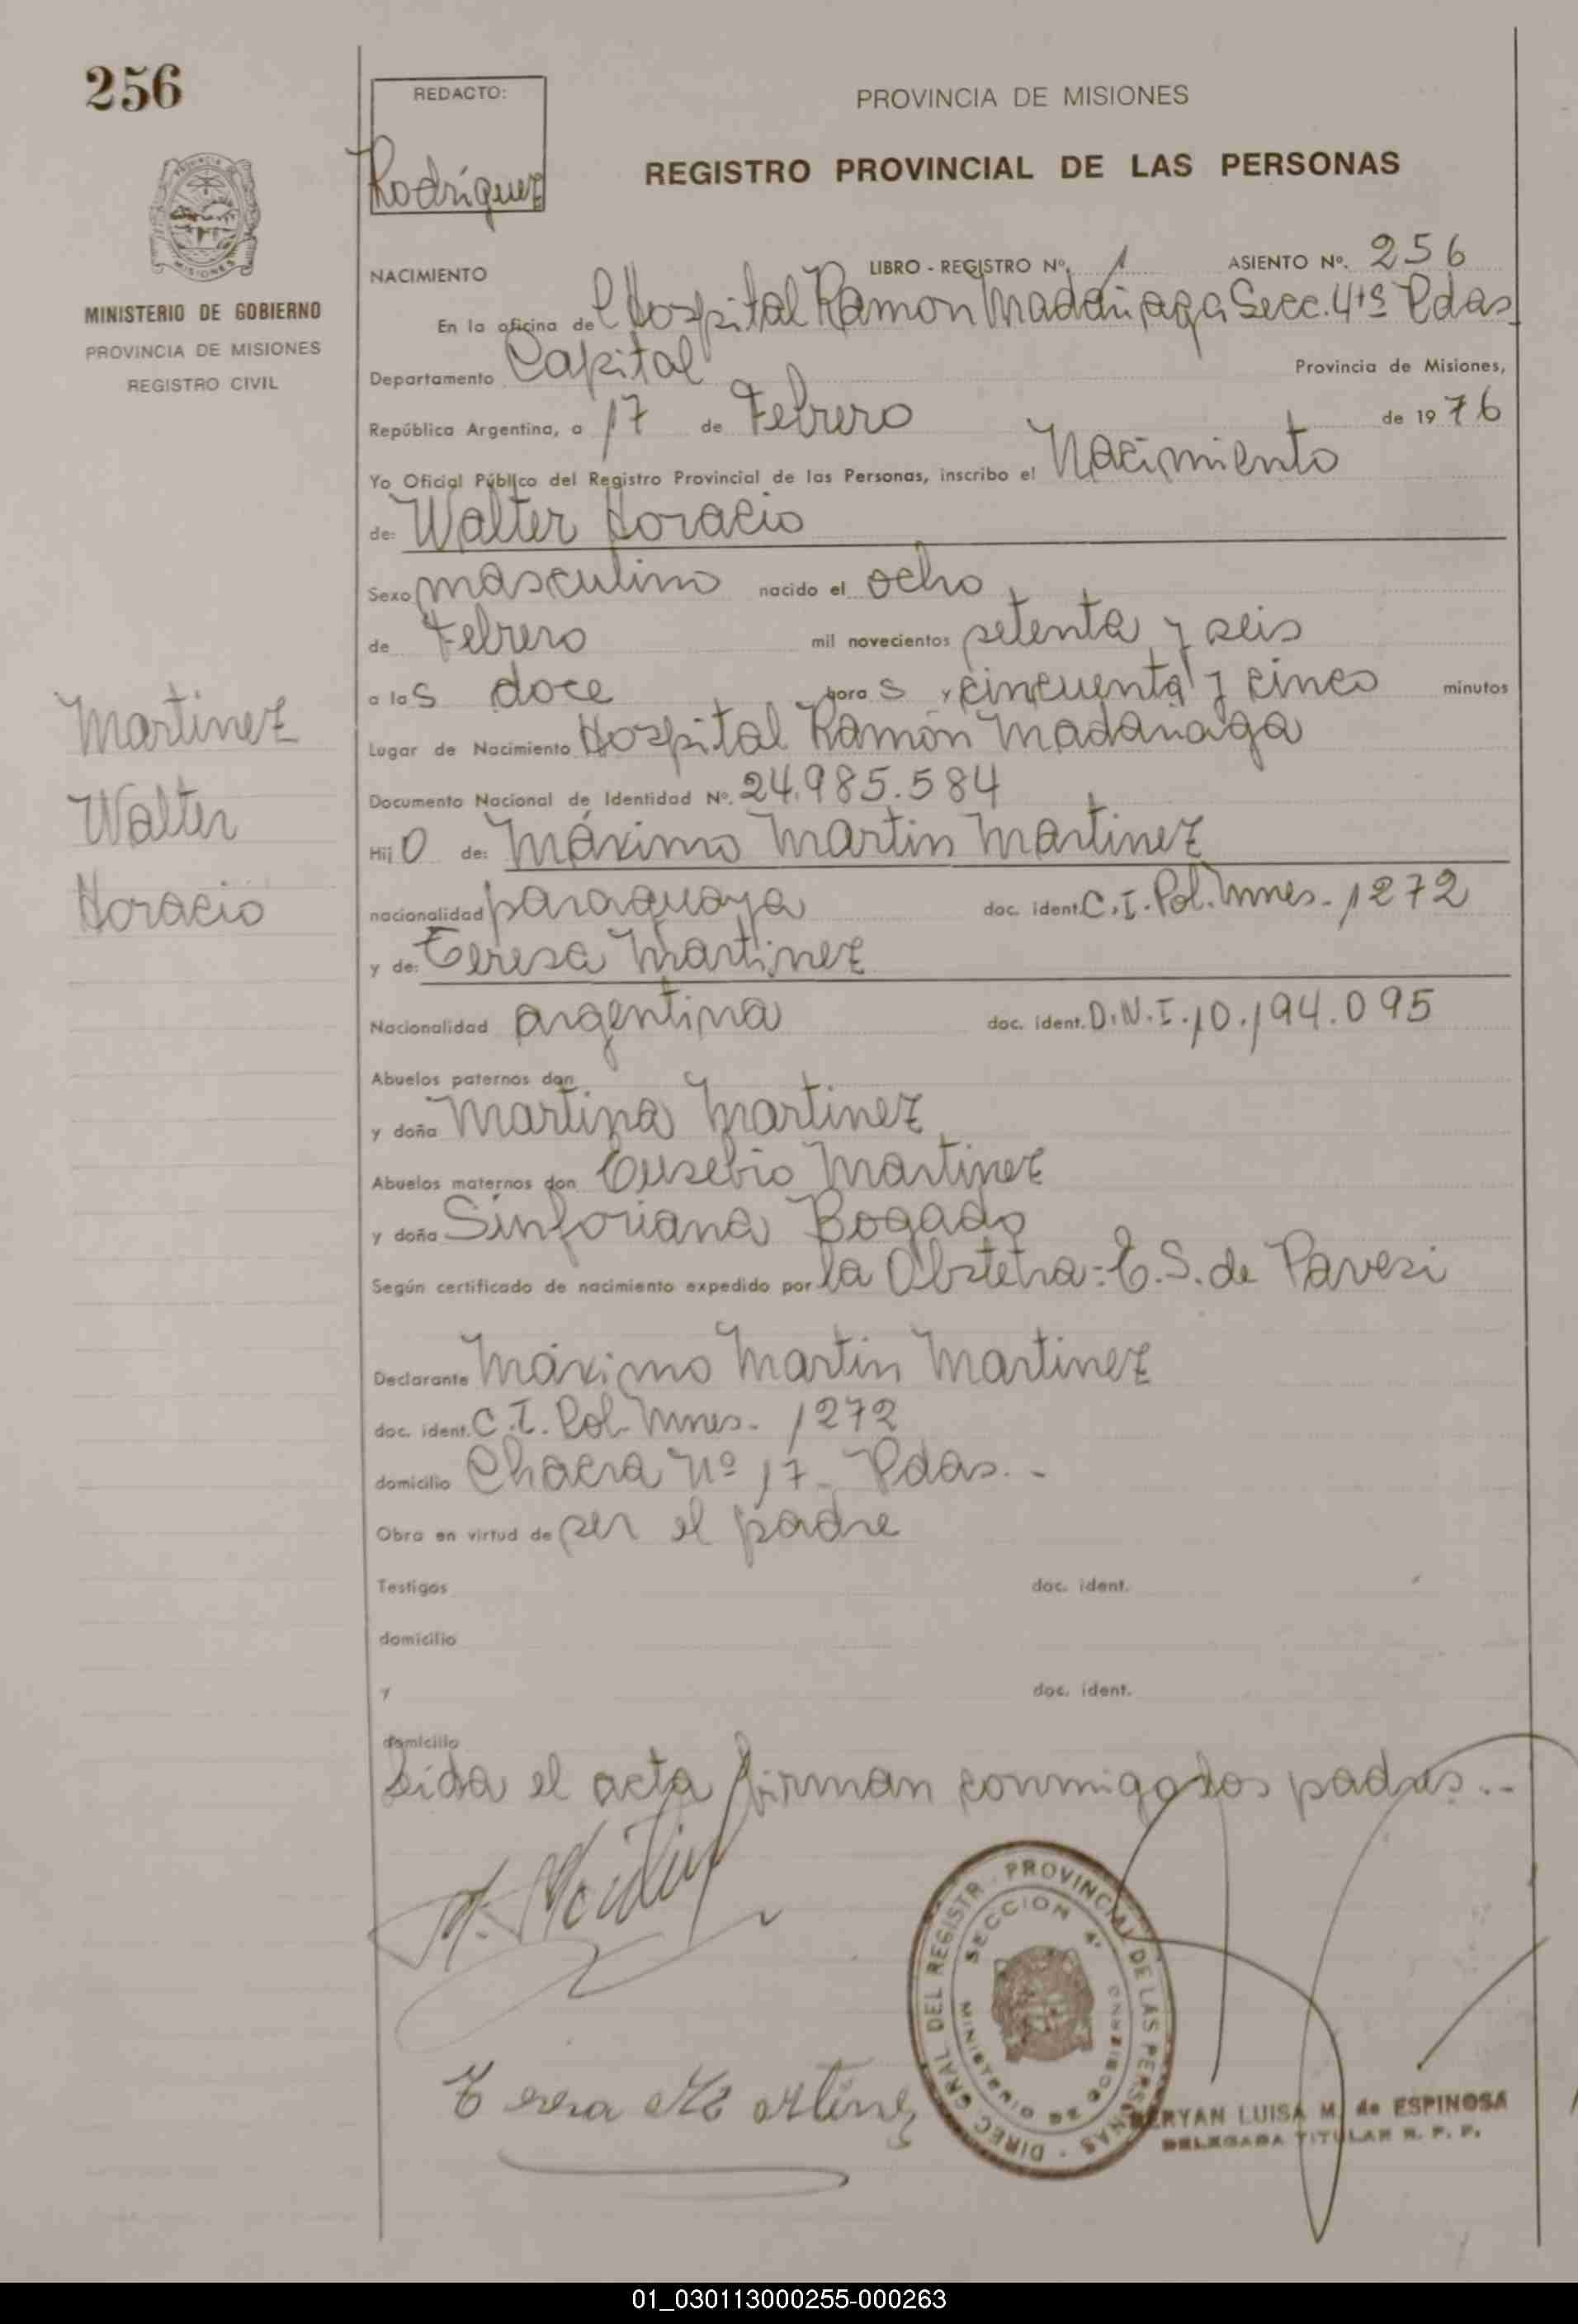 256
MINISTERIO DE GOBIERNO
PROVINCIA DE MISIONES
REGISTRO CIVIL
Martinez
Walter
Horacio
REDACTO:
Rodríguez
PROVINCIA DE MISIONES
REGISTRO PROVINCIAL DE LAS PERSONAS
NACIMIENTO LIBRO - REGISTRO Nº. 1 ASIENTO Nº. 256
En la oficina del Hospital Ramon Madariaga Secc. 4ta Pdas
Departamento Capital Provincia de Misiones,
República Argentina, a 17 de Febrero de 1976
Yo Oficial Público del Registro Provincial de las Personas, inscribo el Nacimiento
de: Walter Horacio
Sexo masculino nacido el ocho
de Febrero mil novecientos setenta y seis
a las doce horas y cincuenta y cinco minutos
Lugar de Nacimiento Hospital Ramón Madariaga
Documento Nacional de Identidad Nº. 24.985.584
Hijo de: Máximo Martin Martinez
nacionalidad paraguaya doc. ident. C.I. Pol. Mnes. 1272
y de: Teresa Martinez
Nacionalidad argentina doc. ident. D.N.I. 10.194.095
Abuelos paternos don
y doña Martina Martinez
Abuelos maternos don Eusebio Martinez
y doña Sinforiana Bogado
Según certificado de nacimiento expedido por la Obstetra: E.S. de Pavesi
Declarante Máximo Martin Martinez
doc. ident. C.I. Pol. Mnes. 1272
domicilio Chacra Nº 17 - Pdas. -
Obra en virtud de ser el padre
Testigos doc. ident.
domicilio
y doc. ident.
domicilio
Leida el acta firman conmigo los padres. --
DIREC. GRAL DEL REGISTR. PROVINCIAL DE LAS PERSONAS
SECCION 4ª
Teresa Martinez
LUISA M. de ESPINOSA
DELEGADA TITULAR R. P. P.
01_030113000255-000263